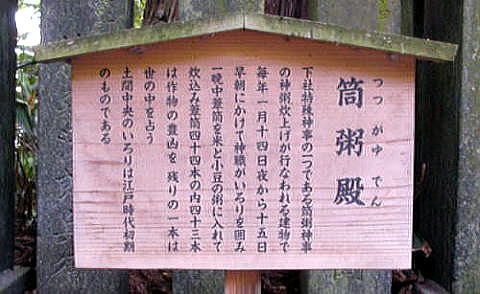 筒粥殿
つつがゆでん
下社特殊神事の一つである筒粥神事
の神粥炊上げが行なわれる建物で
毎年一月十四日夜から十五日
早朝にかけて神職がいろりを囲み
一晩中葦筒を米と小豆の粥に入れて
炊込み葦筒四十四本の内四十三本
は作物の豊凶を残りの一本は
世の中を占う
土間中央のいろりは江戸時代初期
のものである